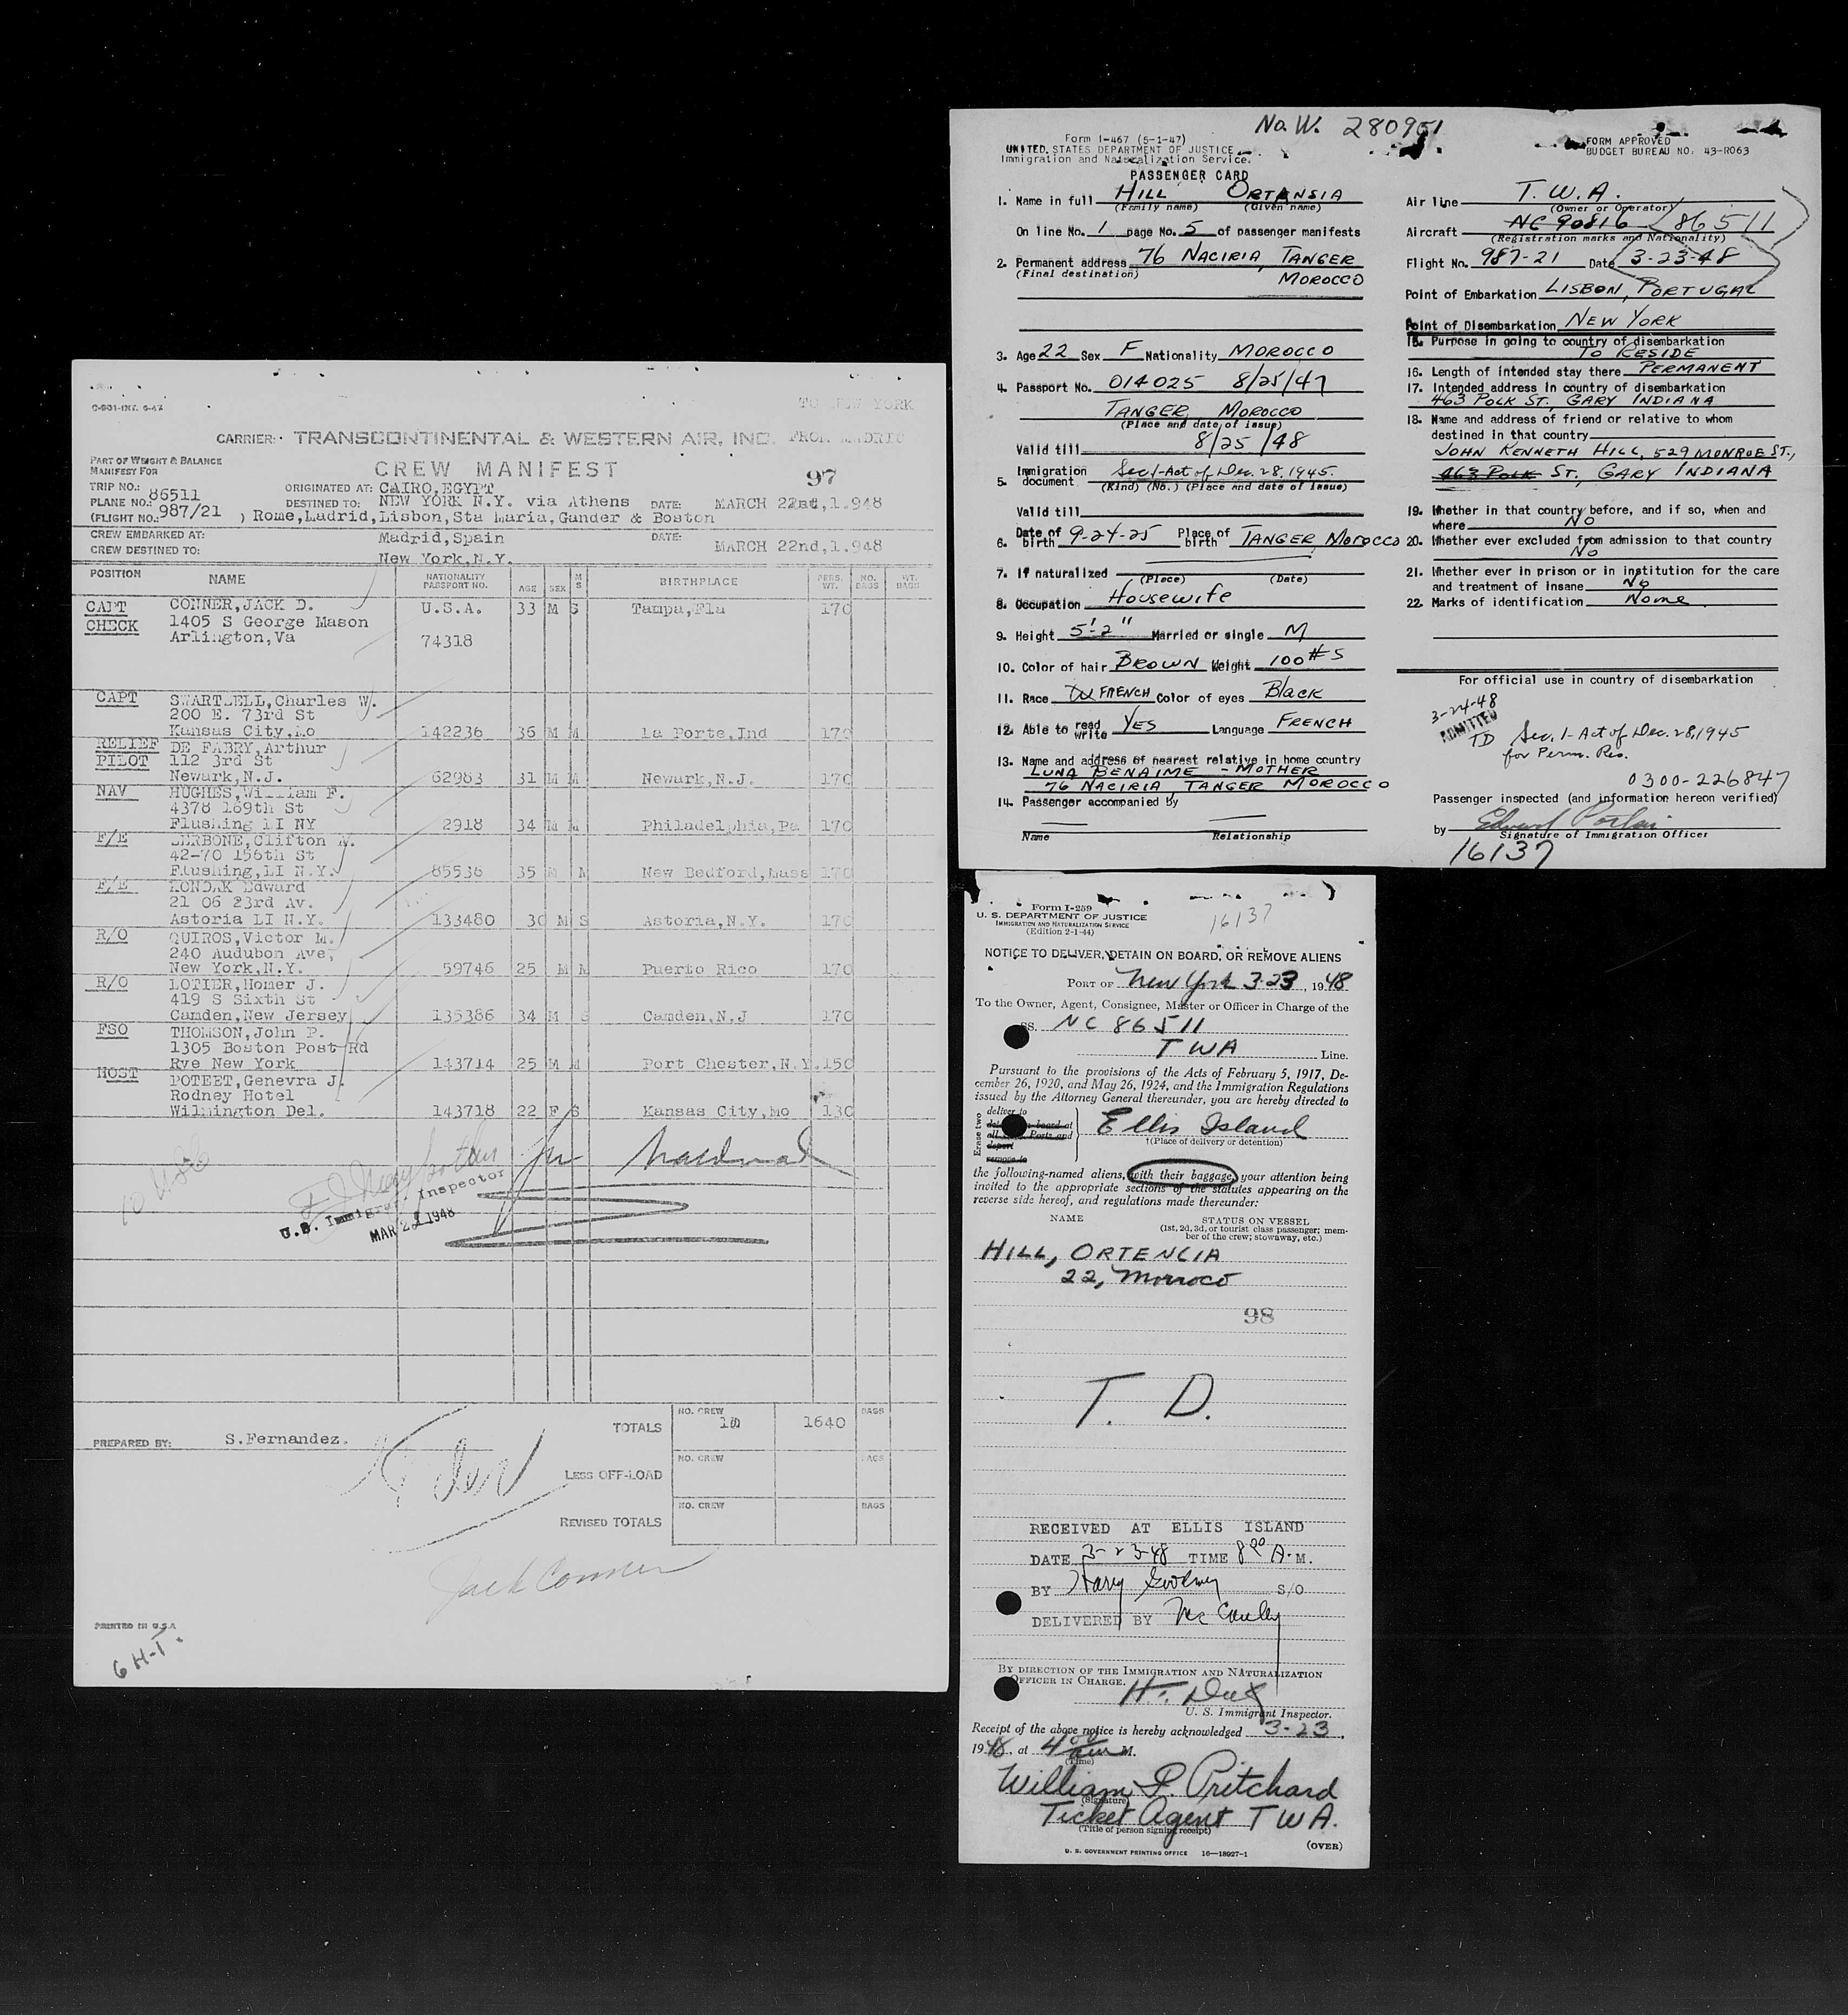 C-901-INT. 6-47
TO NEW YORK
CARRIER: TRANSCONTINENTAL & WESTERN AIR, INC. FROM MADRID
PART OF WEIGHT & BALANCE
MANIFEST FOR
CREW MANIFEST
97
TRIP NO.: 86511
ORIGINATED AT: CAIRO,EGYPT
PLANE NO.:
DESTINED TO: NEW YORK N.Y. via Athens DATE: MARCH 22nd,1.948
(FLIGHT NO.: 987/21 ) Rome,Ladrid,Lisbon,Sta Maria,Gander & Boston
CREW EMBARKED AT: Madrid,Spain DATE: MARCH 22nd,1.948
CREW DESTINED TO: New York,N.Y.
POSITION NAME NATIONALITY PASSPORT NO. AGE SEX M S BIRTHPLACE PERS. WT. NO. BAGS WT. BAGS
CAPT CONNER,JACK D. U.S.A. 33 M S Tampa,Fla 170
CHECK 1405 S George Mason
Arlington,Va 74318
CAPT Charles W.
200 E. 73rd St
Kansas City,Mo 142236 36 M M La Porte,Ind 170
RELIEF DE FABRY,Arthur
PILOT 112 3rd St
Newark,N.J. 62983 31 M M Newark,N.J. 170
NAV HUGHES,William F.
4378 169th St
Flushing LI NY 2918 34 M M Philadelphia,Pa 170
F/E Clifton
42-70 156th St
Flushing,LI N.Y. 85536 35 M M New Bedford,Mass 170
F/E KONDAK Edward
21 06 23rd Av.
Astoria LI N.Y. 133480 30 M S Astoria,N.Y. 170
R/O QUIROS,Victor M.
240 Audubon Ave,
New York,N.Y. 59746 25 M M Puerto Rico 170
R/O LOTIER,Homer J.
419 S Sixth St
Camden,New Jersey 135386 34 M S Camden,N.J 170
FSO THOMSON,John P.
1305 Boston Post Rd
Rye New York 143714 25 M M Port Chester,N.Y. 150
HOST POTEET,Genevra J.
Rodney Hotel
Wilmington Del. 143718 22 F S Kansas City,Mo 130
U.S. Immigrant Inspector
MAR 1948
TOTALS NO. CREW 10 1640 BAGS
PREPARED BY: S.Fernandez.
LESS OFF-LOAD NO. CREW BAGS
REVISED TOTALS NO. CREW BAGS
Jack Conner
PRINTED IN U.S.A
6 H-T
No. W. 280951
Form I-467 (5-1-47)
UNITED STATES DEPARTMENT OF JUSTICE
Immigration and Naturalization Service.
FORM APPROVED
BUDGET BUREAU NO. 43-R063
PASSENGER CARD
1. Name in full HILL ORTANSIA
(Family name) (Given name)
On line No. 1 page No. 5 of passenger manifests
2. Permanent address 76 NACIRIA, TANGER
(Final destination) MOROCCO
3. Age 22 Sex F Nationality MOROCCO
4. Passport No. 014025 8/25/47
TANGER, MOROCCO
(Place and date of issue)
Valid till 8/25/48
5. Immigration document Sec. 1-Act of Dec. 28, 1945.
(Kind) (No.) (Place and date of issue)
Valid till
6. Date of birth 9-24-25 Place of birth TANGER, MOROCCO
7. If naturalized
(Place) (Date)
8. Occupation Housewife
9. Height 5'-2" Married or single M
10. Color of hair BROWN Weight 100#s
11. Race W FRENCH Color of eyes Black
12. Able to read write YES Language FRENCH
13. Name and address of nearest relative in home country
LUNA BENAIME - MOTHER
76 NACIRIA, TANGER MOROCCO
14. Passenger accompanied by
Name Relationship
Air line T.W.A.
(Owner or Operator)
Aircraft NC 90816 86511
(Registration marks and Nationality)
Flight No. 987-21 Date 3-23-48
Point of Embarkation LISBON, PORTUGAL
Point of Disembarkation NEW YORK
15. Purpose in going to country of disembarkation
TO RESIDE
16. Length of intended stay there PERMANENT
17. Intended address in country of disembarkation
463 POLK ST., GARY INDIANA
18. Name and address of friend or relative to whom
destined in that country
JOHN KENNETH HILL, 529 MONROE ST.,
463 POLK ST., GARY INDIANA
19. Whether in that country before, and if so, when and
where NO
20. Whether ever excluded from admission to that country
NO
21. Whether ever in prison or in institution for the care
and treatment of insane No
22. Marks of identification None
For official use in country of disembarkation
3-24-48
ADMITTED
TD Sec. 1-Act of Dec. 28, 1945
for Perm. Res.
0300-226847
Passenger inspected (and information hereon verified)
by
Signature of Immigration Officer
16137
Form I-259
U. S. DEPARTMENT OF JUSTICE
IMMIGRATION AND NATURALIZATION SERVICE
(Edition 2-1-44)
16137
NOTICE TO DELIVER, DETAIN ON BOARD, OR REMOVE ALIENS
PORT OF New York 3-23, 1948
To the Owner, Agent, Consignee, Master or Officer in Charge of the
SS. NC 86511
TWA Line.
Pursuant to the provisions of the Acts of February 5, 1917, De-
cember 26, 1920, and May 26, 1924, and the Immigration Regulations
issued by the Attorney General thereunder, you are hereby directed to
Erase two
deliver to
board at
all Ports and
deport
remove to
Ellis Island
†(Place of delivery or detention)
the following-named aliens, with their baggage, your attention being
invited to the appropriate sections of the statutes appearing on the
reverse side hereof, and regulations made thereunder:
NAME STATUS ON VESSEL
(1st, 2d, 3d, or tourist class passenger; mem-
ber of the crew; stowaway, etc.)
HILL, ORTENCIA
22, Morroco
98
T. D.
RECEIVED AT ELLIS ISLAND
DATE 3-23-48 TIME 8 00 A.M.
BY Harry S/O
DELIVERED BY McCauley
BY DIRECTION OF THE IMMIGRATION AND NATURALIZATION
OFFICER IN CHARGE.
U. S. Immigrant Inspector.
Receipt of the above notice is hereby acknowledged 3-23,
1948, at 4 00 am M.
(Time)
William P. Pritchard
(Signature)
Ticket Agent TWA.
(Title of person signing receipt)
(OVER)
U. S. GOVERNMENT PRINTING OFFICE 16—18927-1